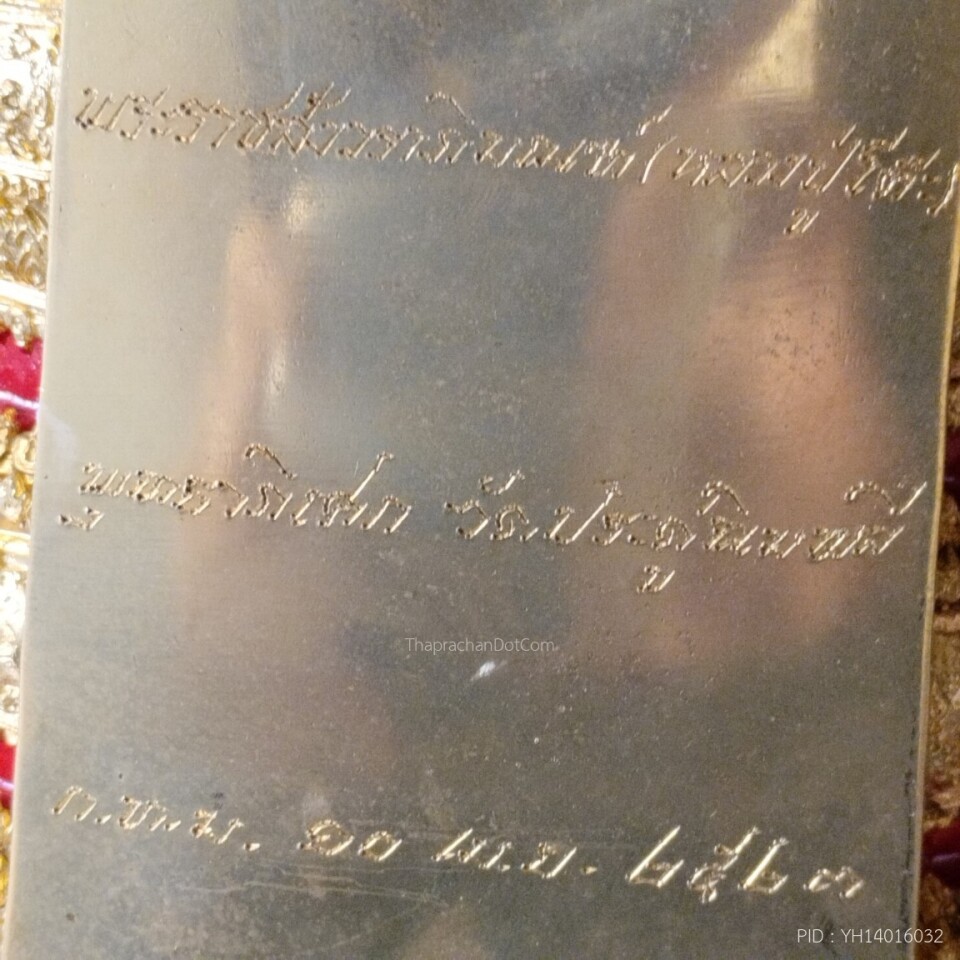 พระราชสังวราภิมณฑ์ (หลวงปู่โต๊ะ)
พุทธาภิเษก วัดประดู่ฉิมพลี
ก.ท.ม. ๑๐ พ.ย. ๒๕๒๓
ThaprachanDotCom
PID : YH14016032